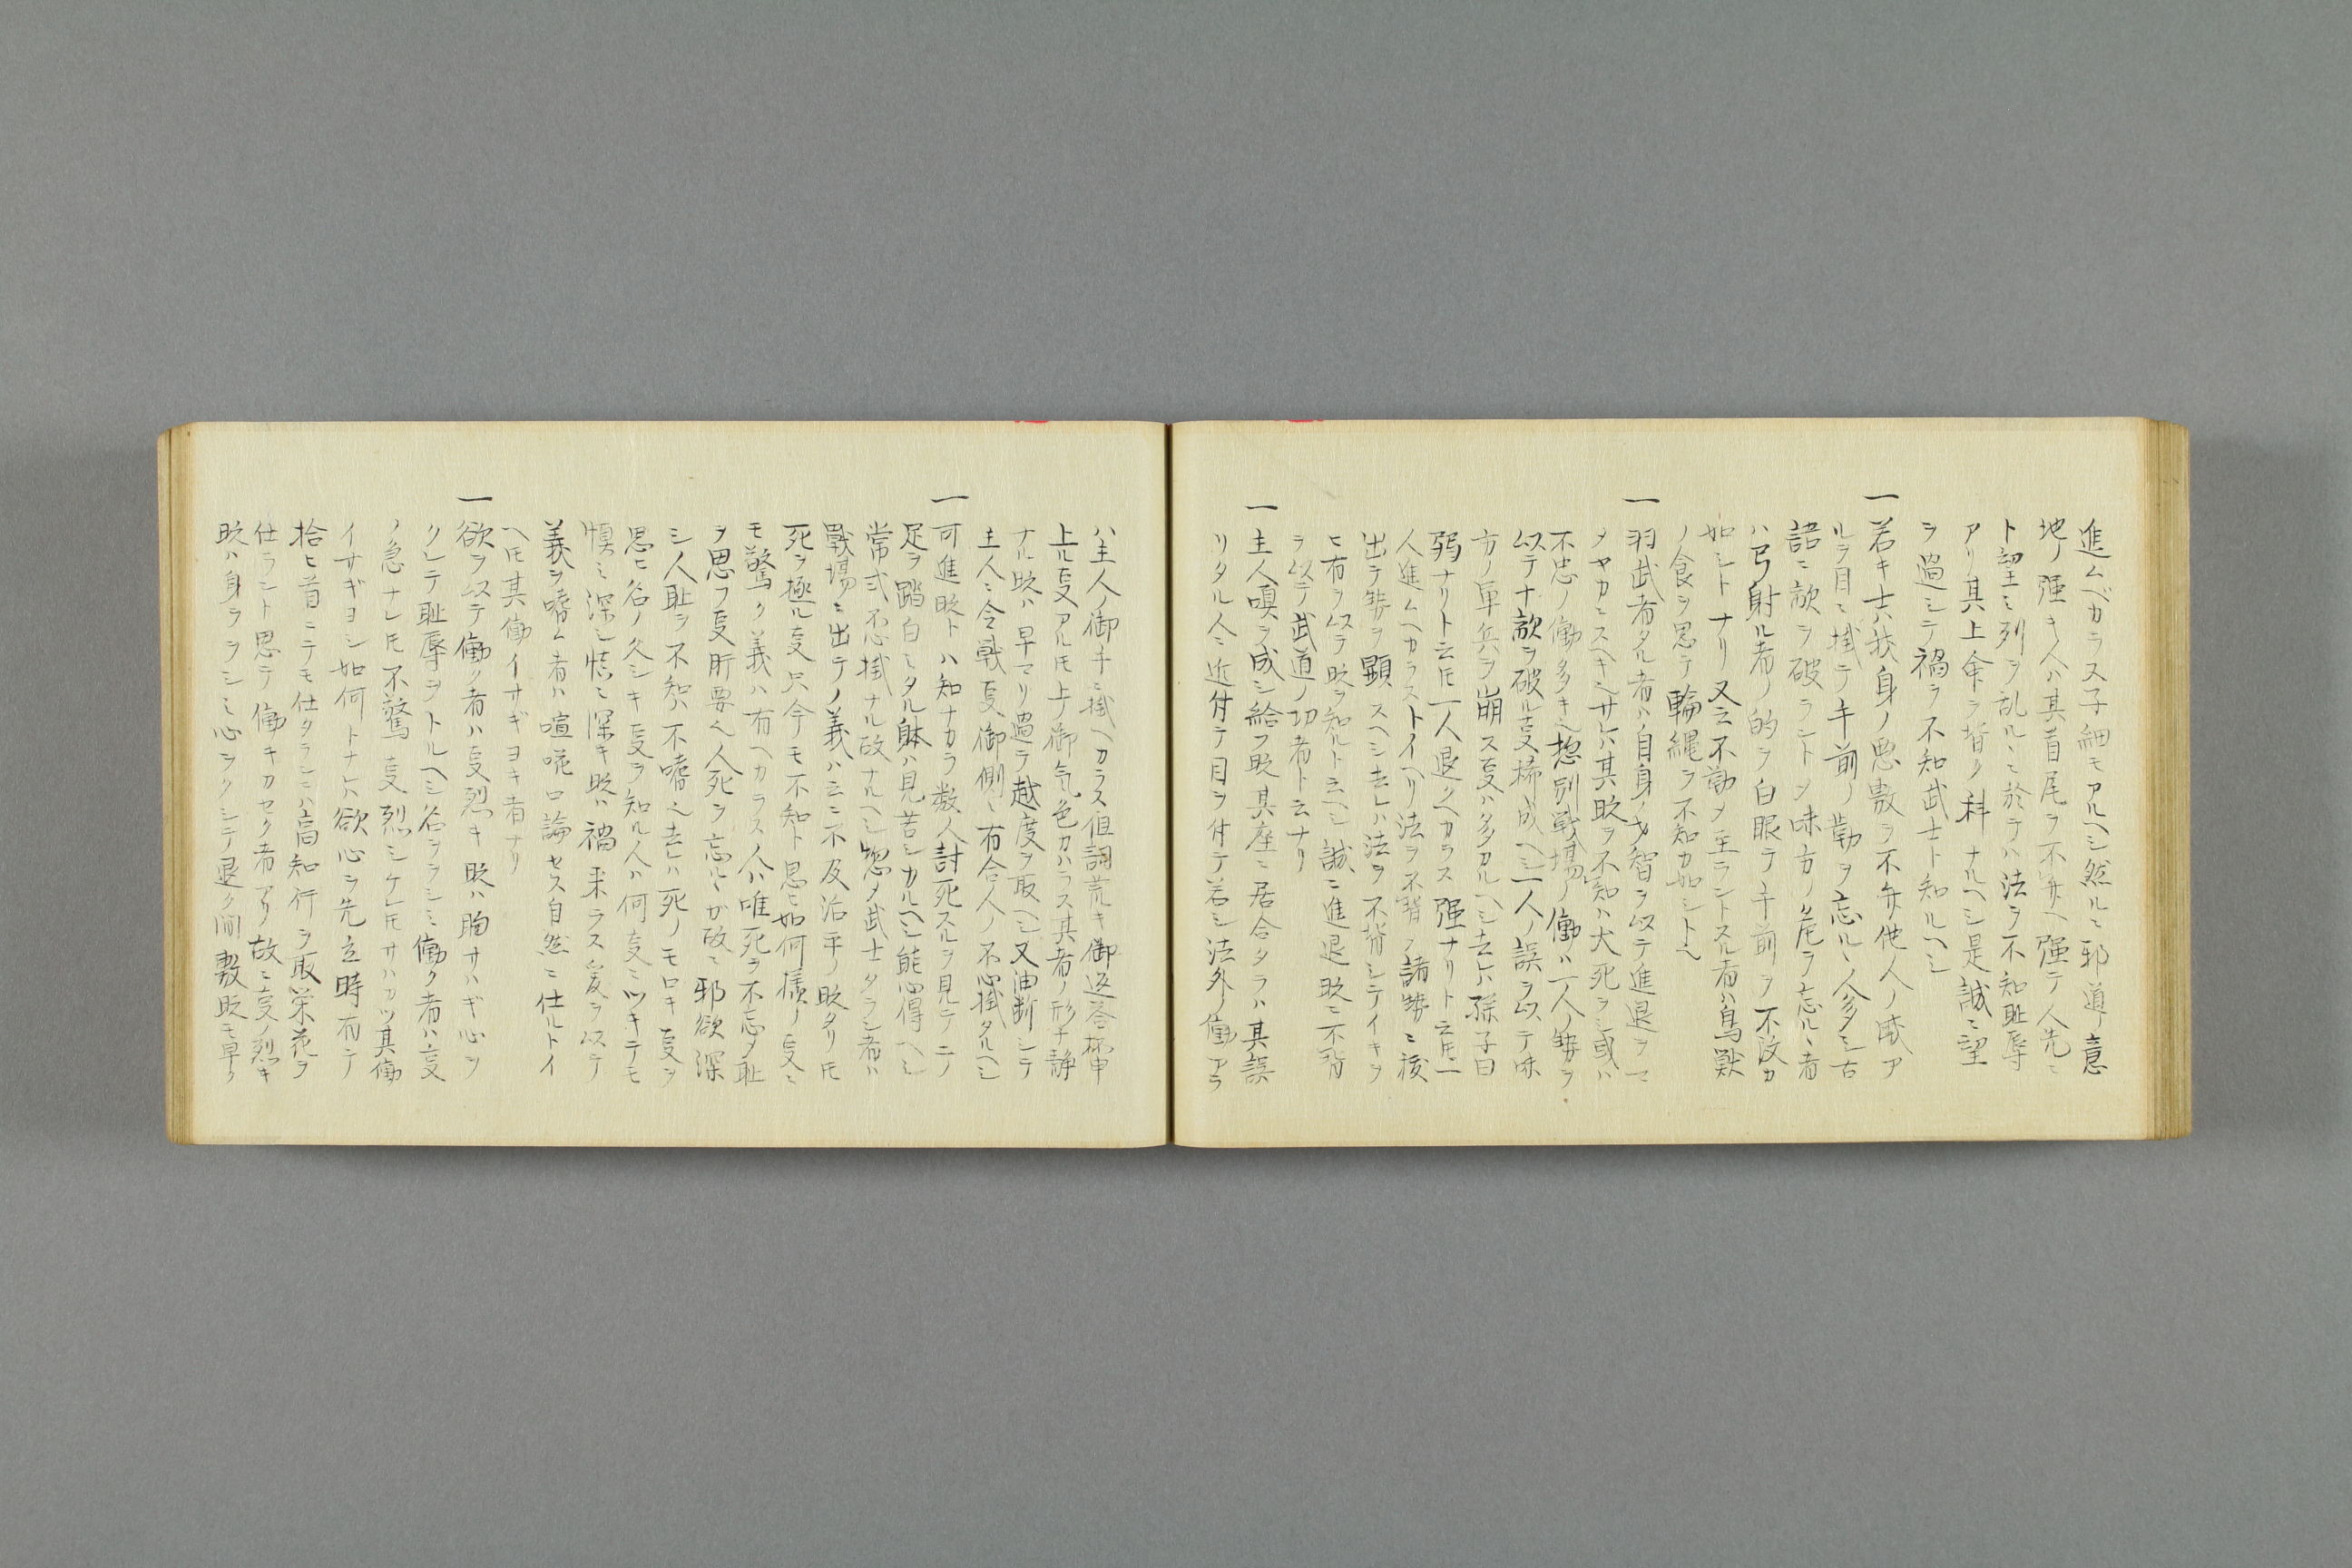 進ムベカラス子細モアルヘシ然ルニ邪道ノ意
地ノ强キ人ハ其首尾ヲ不弁ヘ强テ人先ニ
ト望ミ列ヲ乱ルニ於テハ法ヲ不知耻辱
アリ其上命ヲ背ク科ナルヘシ是誠ニ望
ヲ過シテ禍ヲ不知武士ト知ルヘシ
一若キ士ハ扶身ノ悪敷ヲ不弁他人ノ威ア
ルヲ目ニ掛テ手前ノ勤ヲ忘ルヽ人多シ古
語ニ敵ヲ破ラントメ味方ノ危ヲ忘ルヽ者
ハ弓射ル者ノ的ヲ白眼テ手前ヲ不改カ
如シトナリ又云不勤メ至ラントスル者ハ鳥獣
ノ食ヲ思テ輪縄ヲ不知カ如シトヘ
一羽武者タル者ハ自身ノ才智ヲ以テ進退ヲマ
メヤカニスヘキヘサレハ其時ヲ不知ハ犬死ヲシ或ハ
不忠ノ働多キヘ惣別戦場ノ働ハ一人ノ勢ヲ
以テ大敵ヲ破ル叓掃成ヘシ一人ノ誤ヲ以テ味
方ノ軍兵ヲ崩ス叓ハ多カルヘシ去レハ孫子曰
弱ナリト云𪜈一人退クヘカラス强ナリト云𪜈一
人進ムヘカラストイヘリ法ヲ不背ノ諸勢ニ後
出テ勢ヲ顕スヘシ去レハ法ヲ不背シテイキヲ
ヒ有ヲ以テ時ヲ知ルト云ヘシ誠ニ進退時ニ不背
ヲ以テ武道ノ功者ト云ナリ
一主人嗔ヲ成シ給フ時其座ニ居合タラハ其誤
リタル人ニ近付テ目ヲ付テ若シ法外ノ働アラ
ハ主人ノ御手ニ掛ヘカラス但詞荒キ御返答抔申
上ル叓アル𪜈上ノ御気色カハラス其者ノ形チ静
ナル時ハ早マリ過テ越度ヲ取ヘシ又油断シテ
主人ニ令戦叓御側ニ有合人ノ不心掛タルヘシ
一可進時トハ知ナカラ数人討死スルヲ見テ二ノ
足ヲ踏白ミタル躰ハ見苦シカルヘシ能心得ヘシ
常式不心掛ナル故ナルヘシ惣メ武士タラン者ハ
戰場ニ出テノ義ハ云ニ不及治平ノ時タリ𪜈
死ヲ極ル叓只今モ不知ト思ヒ如何様ノ叓ニ
モ驚ク義ハ有ヘカラス人ハ唯死ヲ不忘メ耻
ヲ思フ叓肝要ヘ人死ヲ忘ルヽガ故ニ邪欲深
シ人耻ヲ不知ハ不嗜ヘ去レハ死ノモロキ叓ヲ
思ヒ名ノ久シキ叓ヲ知ル人ハ何叓ニツキテモ
慎ミ深シ慎ミ深キ時ハ禍来ラス爰ヲ以テ
義ヲ嗜ム者ハ喧𠵅口論セス自然ニ仕ルトイ
ヘ𪜈其働イサギヨキ者ナリ
一欲ヲ以テ働ク者ハ叓烈キ時ハ胸サハギ心ヲ
クレテ耻辱ヲトルヘシ名ヲヲシミ働ク者ハ叓
ノ急ナレ𪜈不驚叓烈シケレ𪜈サハカツ其働
イサギヨシ如何トナレハ欲心ヲ先立時有テ
拾ヒ首ニテモ仕タランニハ高知行ヲ取栄花ヲ
仕ラント思テ働キカセク者アリ故ニ叓ノ烈キ
時ハ身ヲヲシミ心ヲクシテ退ク間敷時モ早ク